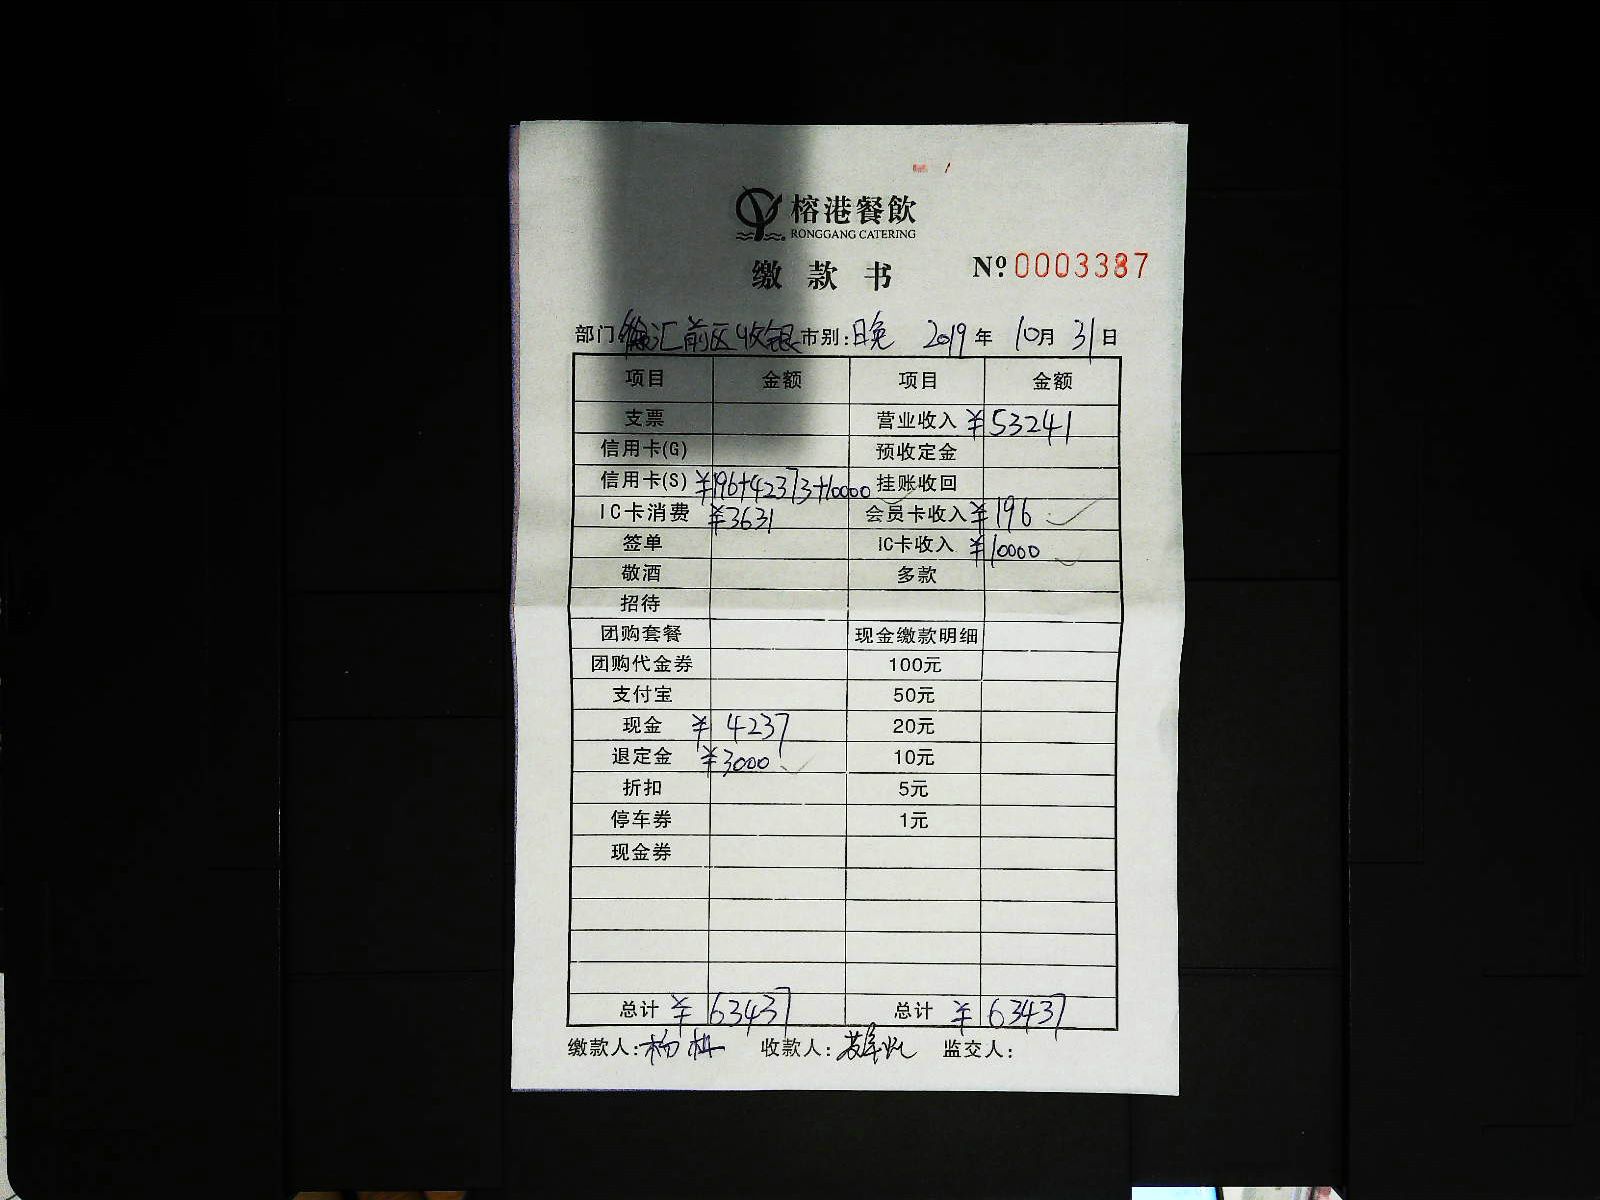 榕港餐飲
RONGGANG CATERING
缴款书 №0003387
部门:徐汇前区收银 市别:晚 2019年10月31日
项目 金额 项目 金额
支票 营业收入 ¥53241
信用卡(G) 预收定金
信用卡(S) ¥196+42373+10000 挂账收回
IC卡消费 ¥3631 会员卡收入 ¥196
签单 IC卡收入 ¥10000
敬酒 多款
招待
团购套餐 现金缴款明细
团购代金券 100元
支付宝 50元
现金 ¥4237 20元
退定金 ¥3000 10元
折扣 5元
停车券 1元
现金券
总计 ¥63437 总计 ¥63437
缴款人: 收款人: 监交人: